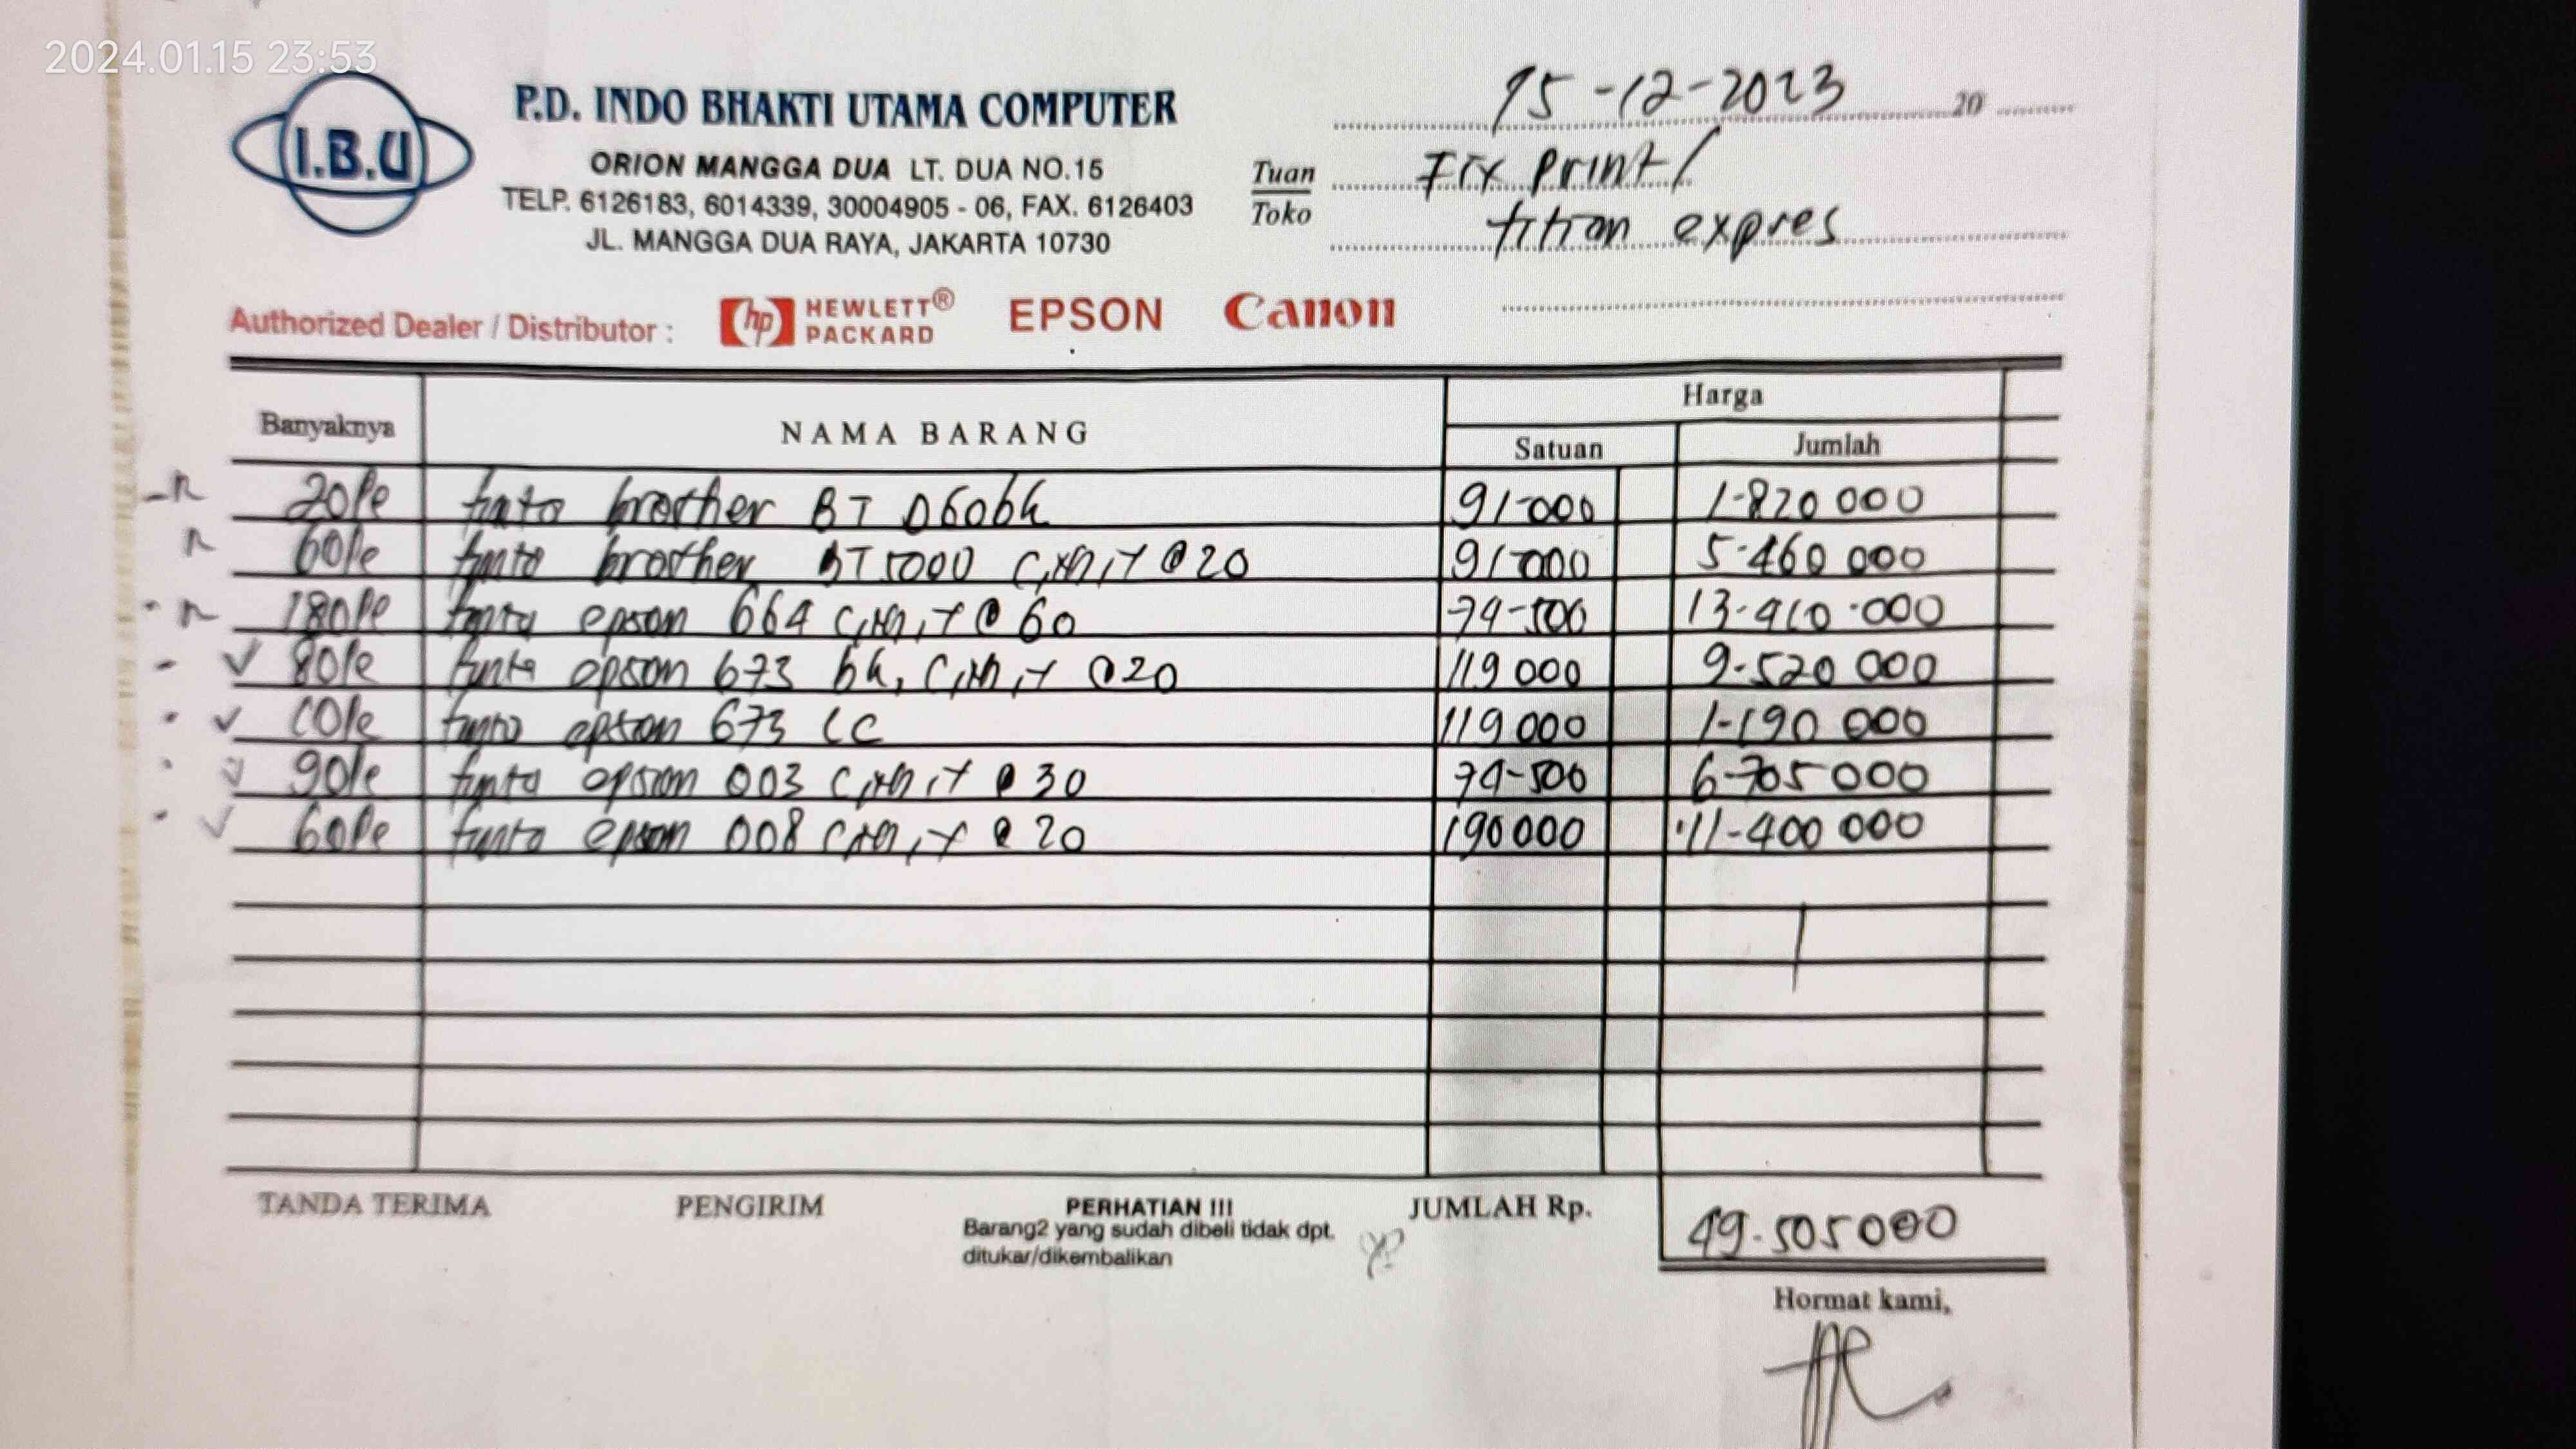 2024.01.15 23:53
I.B.U
P.D. INDO BHAKTI UTAMA COMPUTER
ORION MANGGA DUA LT. DUA NO.15
TELP. 6126183, 6014339, 30004905 - 06, FAX. 6126403
JL. MANGGA DUA RAYA, JAKARTA 10730
15-12-2023 20
Tuan
Toko
print/
expres
Authorized Dealer / Distributor : hp HEWLETT® PACKARD EPSON Canon
Banyaknya NAMA BARANG Harga
Satuan Jumlah
20Pe tinta brother BT D60bk 91-000 1-820 000
60Pe tinta brother BT5000 C,M,Y @20 91-000 5-460 000
180Pe tinta epson 664 C,M,Y @ 60 74-500 13-410-000
80Pe tinta epson 673 bk, C,M,Y @20 119 000 9-520 000
10Pe tinta epson 673 LC 119 000 1-190 000
90Pe tinta epson 003 C,M,Y @ 30 74-500 6-705 000
60Pe tinta epson 008 C,M,Y @ 20 190 000 11-400 000
TANDA TERIMA PENGIRIM PERHATIAN !!! JUMLAH Rp. 49-505 000
Barang2 yang sudah dibeli tidak dpt.
ditukar/dikembalikan
Hormat kami,